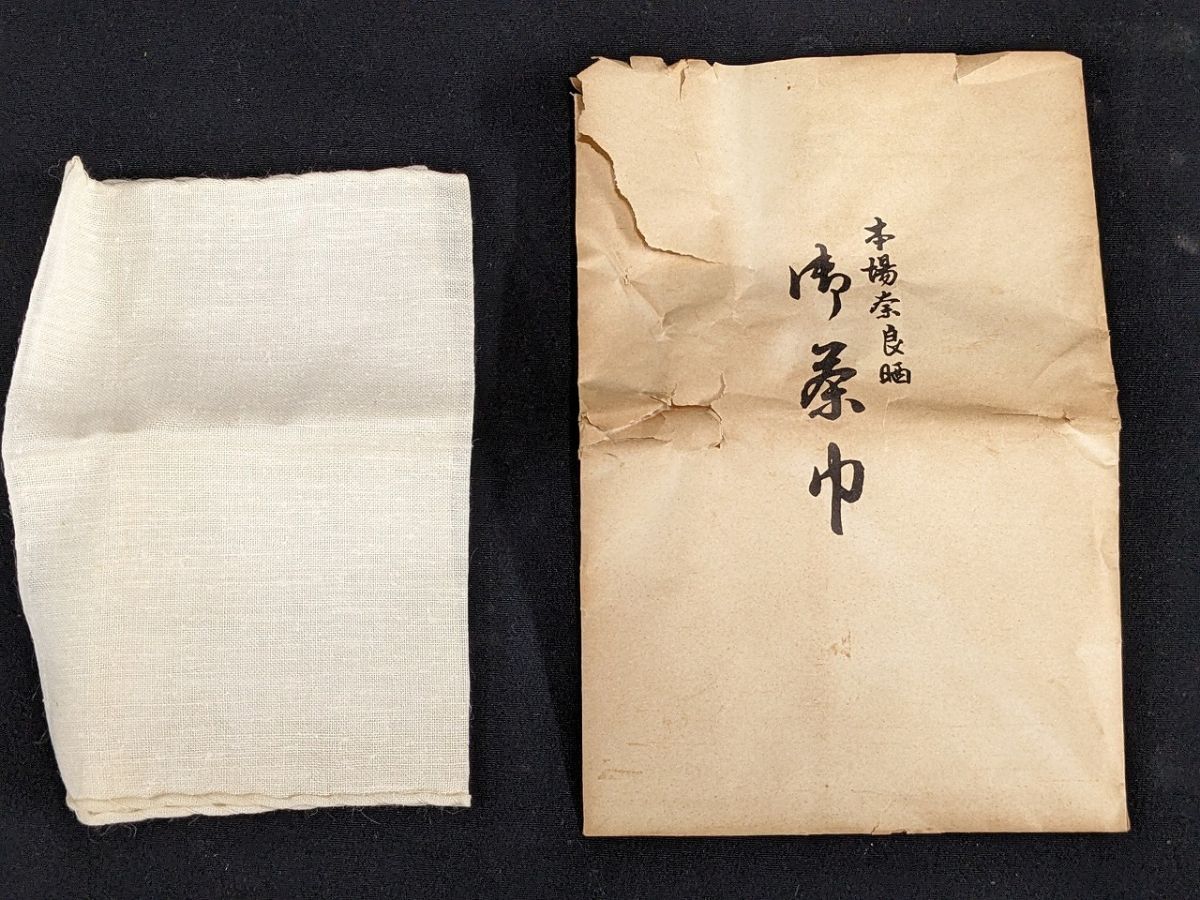 本場奈良晒
御茶巾